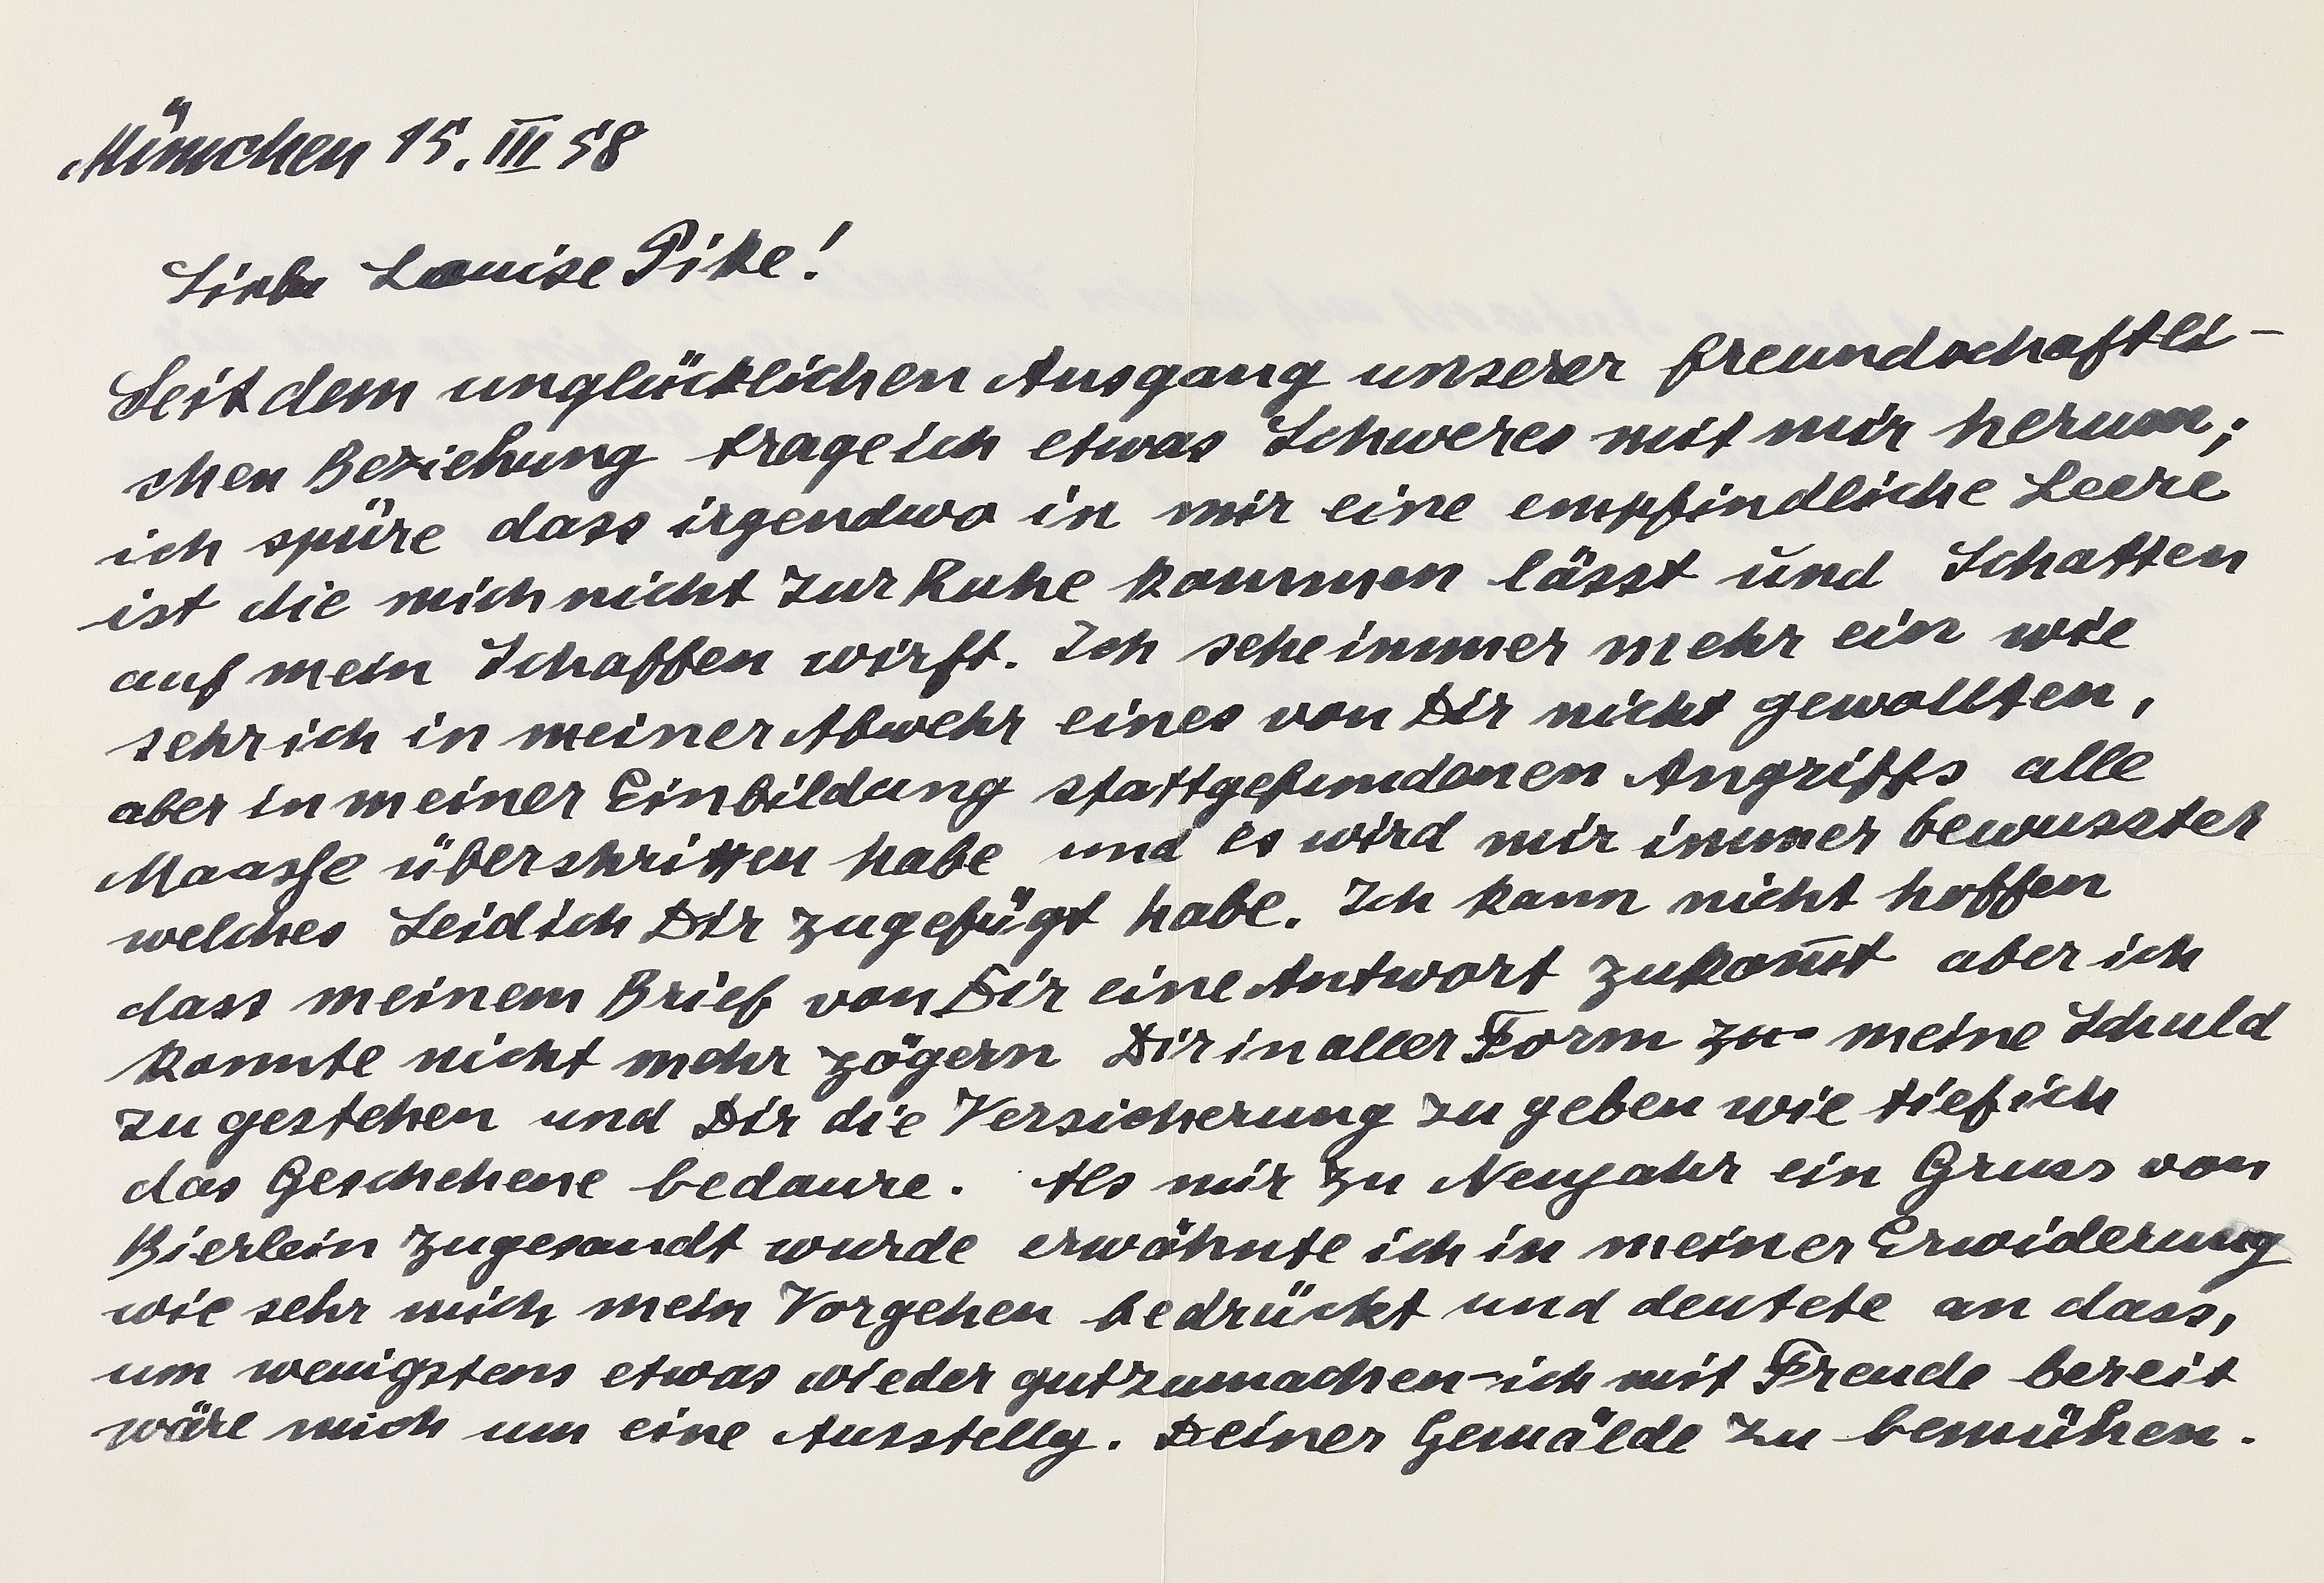 München 15. III 58
Liebe Louise Pike!
Seit dem unglücklichen Ausgang unserer freundschaftli-
chen Beziehung trage ich etwas Schweres mit mir herum;
ich spüre dass irgendwo in mir eine empfindliche Leere
ist die mich nicht zur Ruhe kommen lässt und Schatten
auf mein Schaffen wirft. Ich sehe immer mehr ein wie
sehr ich in meiner Abwehr eines von Dir nicht gewollten,
aber in meiner Einbildung stattgefundenen Angriffs alle
Maasse überschritten habe und es wird mir immer bewusster
welches Leid ich Dir zugefügt habe. Ich kann nicht hoffen
dass meinem Brief von Dir eine Antwort zukom̅t aber ich
konnte nicht mehr zögern Dir in aller Form zu meine Schuld
zu gestehen und Dir die Versicherung zu geben wie tief ich
das Geschehene bedaure. Als mir zu Neujahr ein Gruss von
Bierlein zugesandt wurde erwähnte ich in meiner Erwiderung
wie sehr mich mein Vorgehen bedrückt und deutete an dass,
um wenigstens etwas wieder gutzumachen-ich mit Freude bereit
wäre mich um eine Ausstellg. Deiner Gemälde zu bemühen.